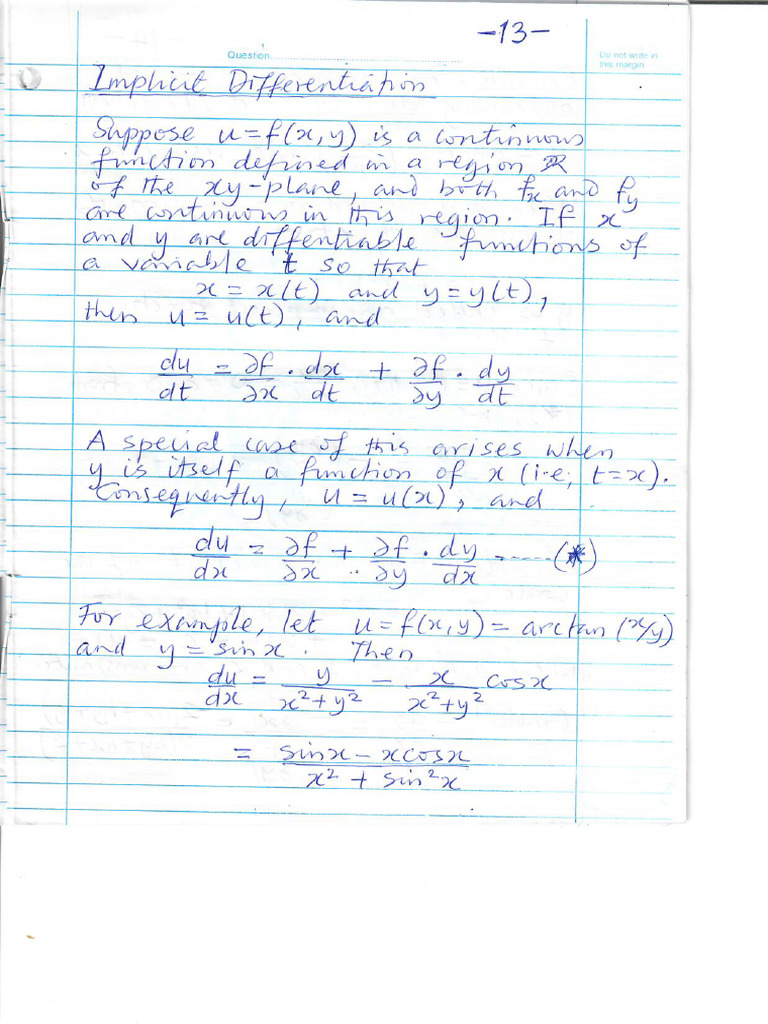 -13-
Question
Do not write in
this margin
Implicit Differentiation
Suppose u = f(x, y) is a continuous
function defined in a region R
of the xy-plane, and both fx and fy
are continuous in this region. If x
and y are diffentiable functions of
a variable t so that
x = x(t) and y = y(t),
then u = u(t), and
du/dt = ∂f/∂x · dx/dt + ∂f/∂y · dy/dt
A special case of this arises when
y is itself a function of x (i.e; t = x).
Consequently, u = u(x), and
du/dx = ∂f/∂x + ∂f/∂y · dy/dx ------(*)
For example, let u = f(x, y) = arctan (x/y)
and y = sin x. Then
du/dx = y/(x² + y²) - x/(x² + y²) cos x
= (sin x - x cos x)/(x² + sin² x)